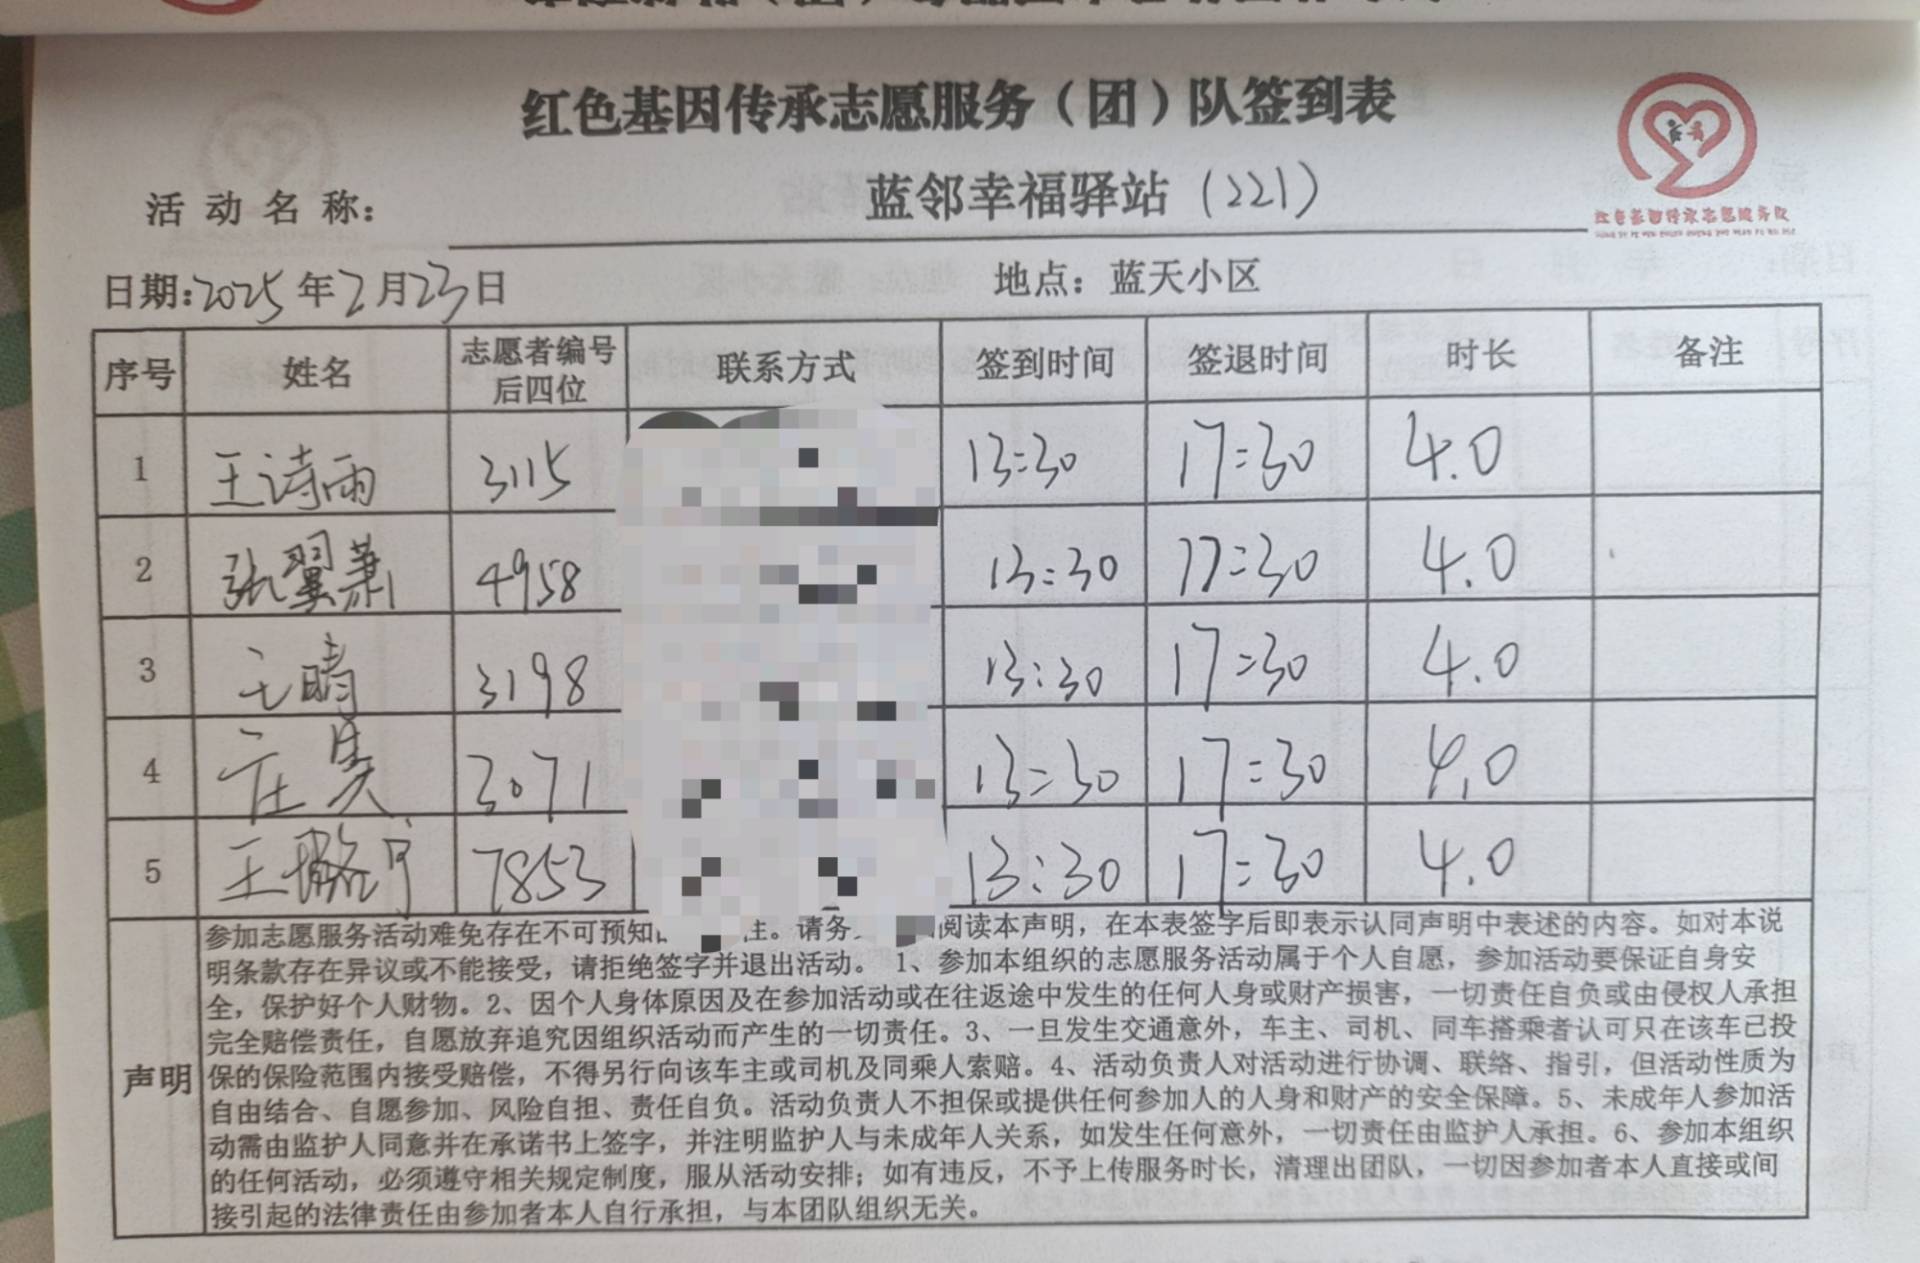 红色基因传承志愿服务（团）队签到表
活动名称： 蓝邻幸福驿站（221）
日期:2025年2月23日 地点：蓝天小区
序号 姓名 志愿者编号后四位 联系方式 签到时间 签退时间 时长 备注
1 王诗雨 3115 13:30 17:30 4.0
2 张翼萧 4958 13:30 17:30 4.0
3 王晴 3198 13:30 17:30 4.0
4 3071 13:30 17:30 4.0
5 王 7853 13:30 17:30 4.0
声明
参加志愿服务活动难免存在不可预知 注。请务 阅读本声明，在本表签字后即表示认同声明中表述的内容。如对本说
明条款存在异议或不能接受，请拒绝签字并退出活动。 1、参加本组织的志愿服务活动属于个人自愿，参加活动要保证自身安
全，保护好个人财物。2、因个人身体原因及在参加活动或在往返途中发生的任何人身或财产损害，一切责任自负或由侵权人承担
完全赔偿责任，自愿放弃追究因组织活动而产生的一切责任。3、一旦发生交通意外，车主、司机、同车搭乘者认可只在该车已投
保的保险范围内接受赔偿，不得另行向该车主或司机及同乘人索赔。4、活动负责人对活动进行协调、联络、指引，但活动性质为
自由结合、自愿参加、风险自担、责任自负。活动负责人不担保或提供任何参加人的人身和财产的安全保障。5、未成年人参加活
动需由监护人同意并在承诺书上签字，并注明监护人与未成年人关系，如发生任何意外，一切责任由监护人承担。6、参加本组织
的任何活动，必须遵守相关规定制度，服从活动安排；如有违反，不予上传服务时长，清理出团队，一切因参加者本人直接或间
接引起的法律责任由参加者本人自行承担，与本团队组织无关。